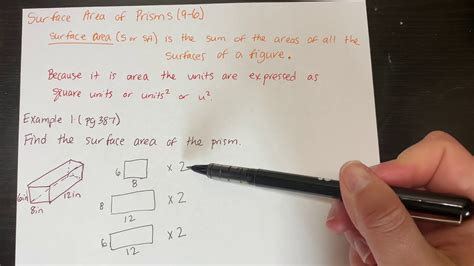 Surface Area of Prisms (9-6)
surface area (S or SA) is the sum of the areas of all the
surfaces of a figure.
Because it is area the units are expressed as
square units or units² or u².
Example 1 (pg 387)
Find the surface area of the prism.
6in
8in
12in
6
8
x 2
8
12
x 2
6
12
x 2